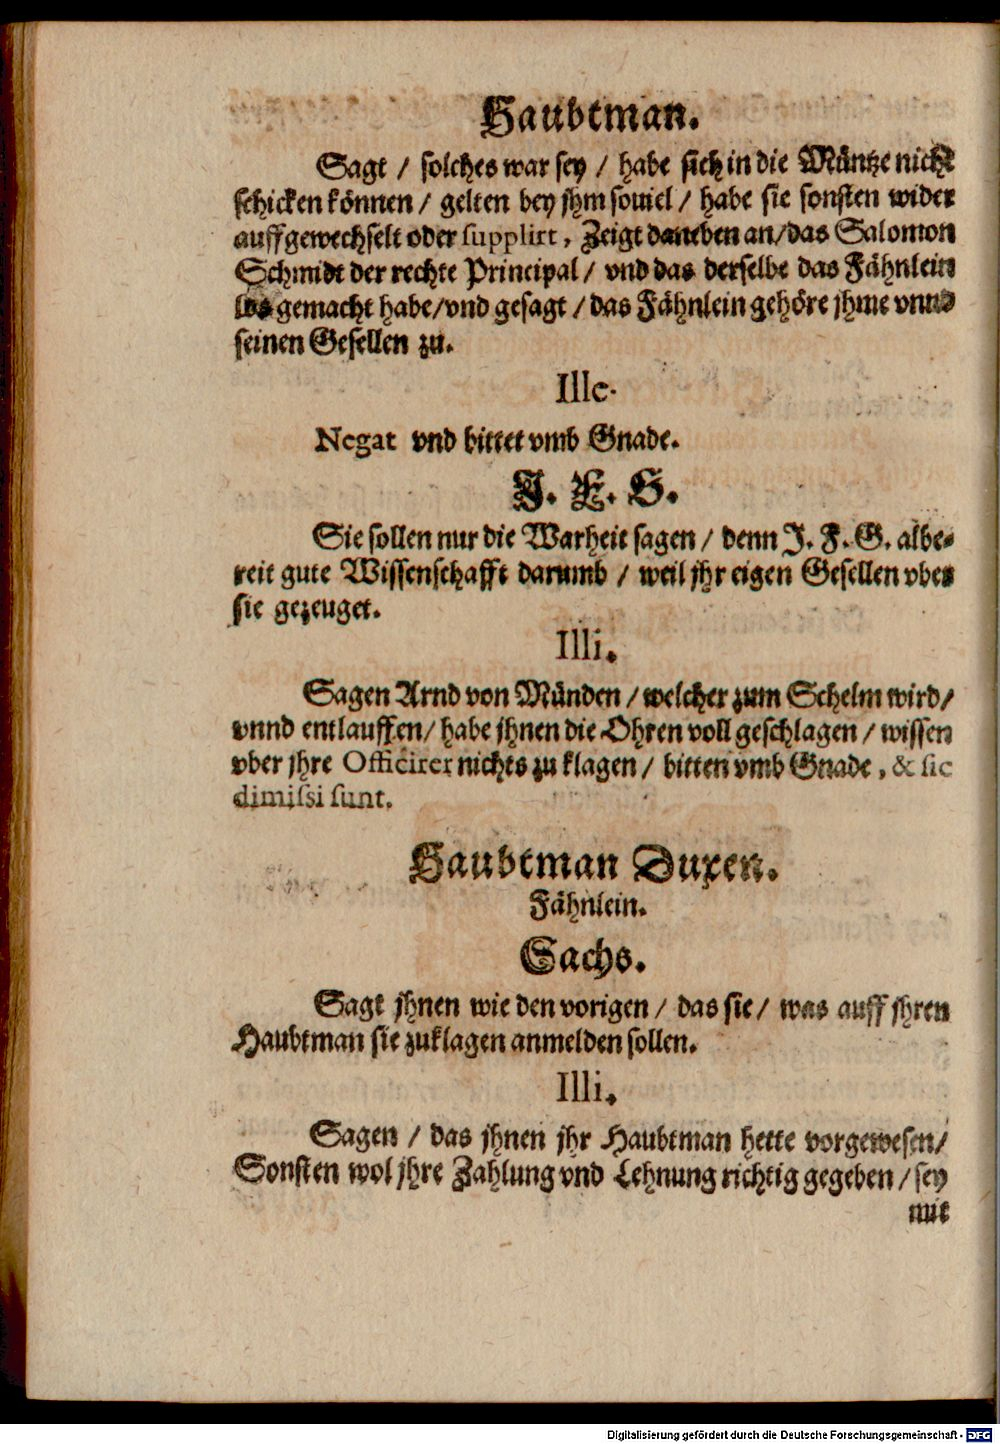 Haubtman.
Sagt / solches war sey / habe sich in die Müntze nicht
schicken können / gelten bey jhm souiel / habe sie sonsten wider
auffgewechselt oder supplirt, Zeigt daneben an/das Salomon
Schmidt der rechte Principal / vnd das derselbe das Fähnlein
los gemacht habe/vnd gesagt / das Fähnlein gehöre jhme vnnd
seinen Gesellen zu.
Ille.
Negat vnd bittet vmb Gnade.
J. F. G.
Sie sollen nur die Warheit sagen / denn J. F. G. albe-
reit gute Wissenschafft darumb / weil jhr eigen Gesellen vber
sie gezeuget.
Illi.
Sagen Arnd von Münden /welcher zum Schelm wird/
vnnd entlauffen/ habe jhnen die Ohren voll geschlagen / wissen
vber jhre Officirer nichts zu klagen / bitten vmb Gnade, & sic
dimissi sunt.
Haubtman Duxen.
Fähnlein.
Sachs.
Sagt jhnen wie den vorigen / das sie / was auff jhren
Haubtman sie zuklagen anmelden sollen.
Illi.
Sagen / das jhnen jhr Haubtman hette vorgewesen/
Sonsten wol jhre Zahlung vnd Lehnung richtig gegeben / sey
mit
Digitalisierung gefördert durch die Deutsche Forschungsgemeinschaft - DFG